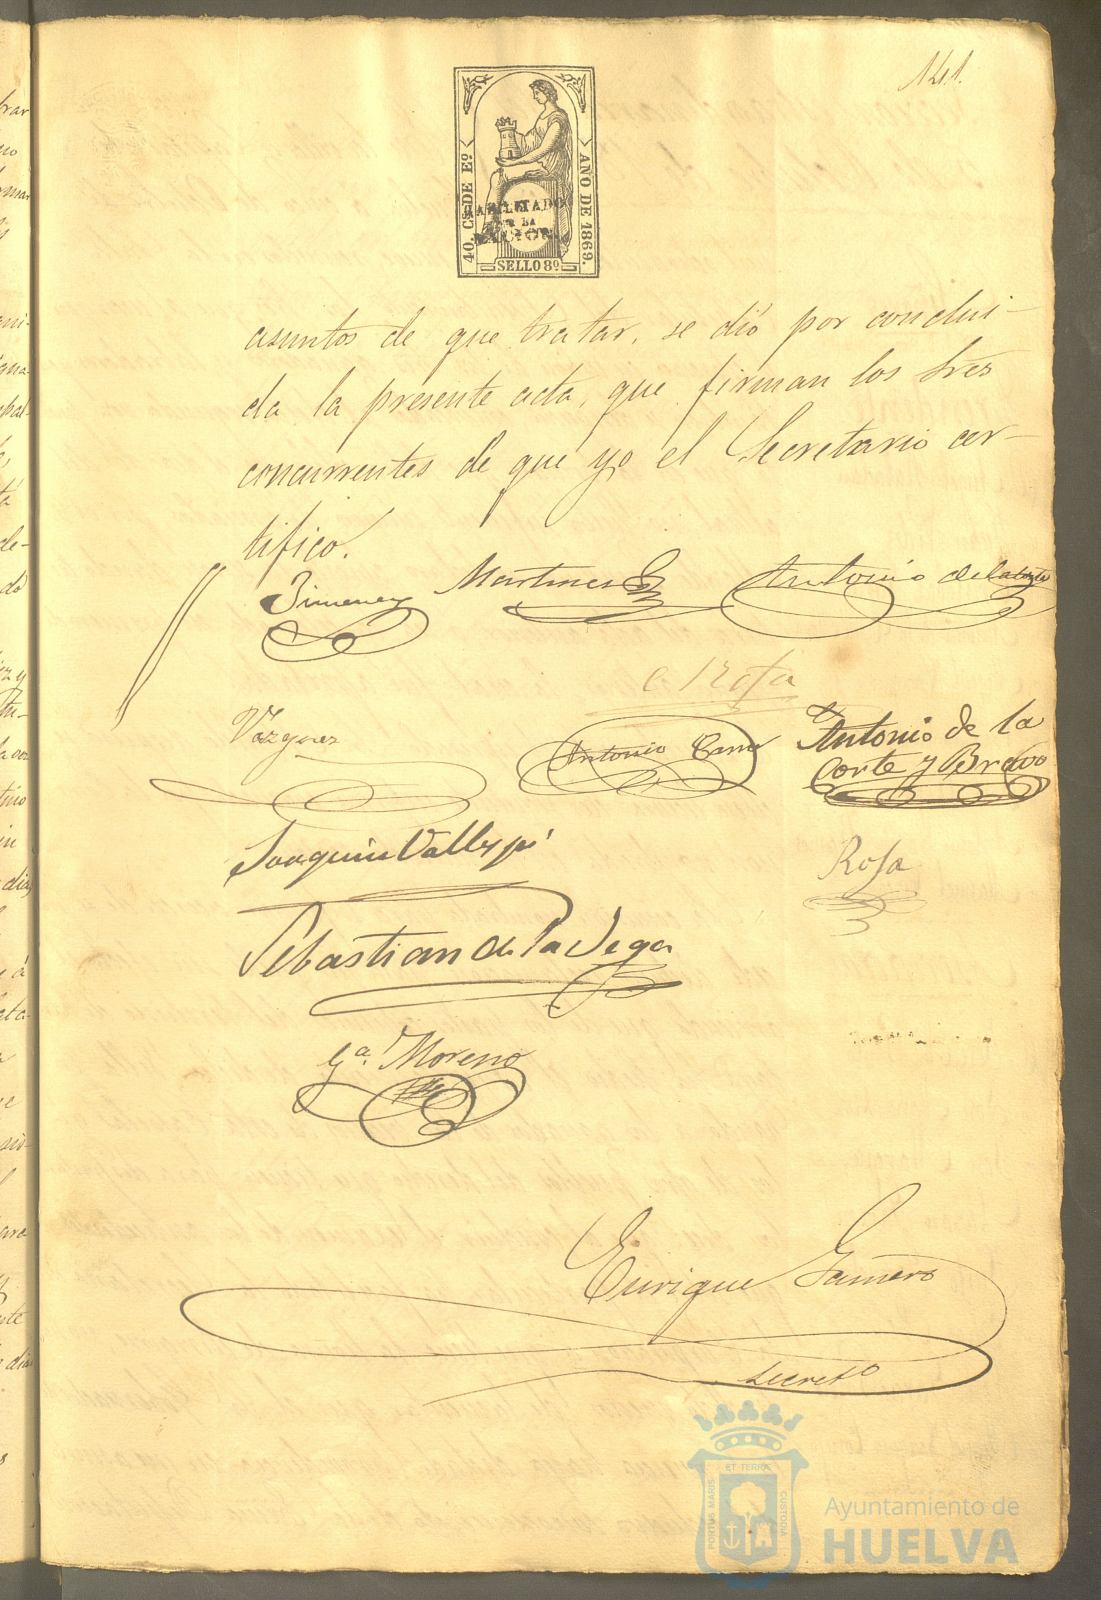 141.
40. Cs. DE Eo.
AÑO DE 1869.
HABILITADO
POR LA
NACION.
SELLO 8º
asuntos de que tratar, se dió por conclui-
da la presente acta, que firman los Sres
concurrentes de que yo el Secretario cer-
tifico.
Jimenez Martinez Antonio de la Corte
Vazquez Antonio Antonio de la
Corte y Bravo
Joaquin Vallespi Rosa
Sebastian de la Vega
Gª. Moreno
Enrique Gamero
Secretº
PORTUS MARIS
ET TERRE
CUSTODIA
Ayuntamiento de
HUELVA